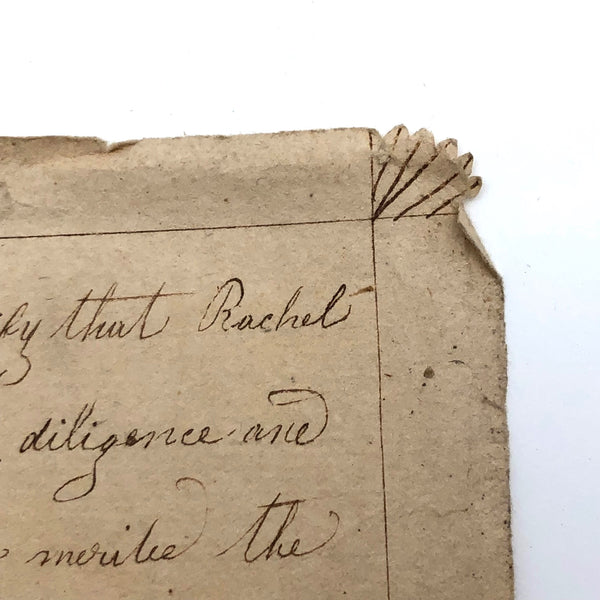 fy that Rachel
diligence and
merits the